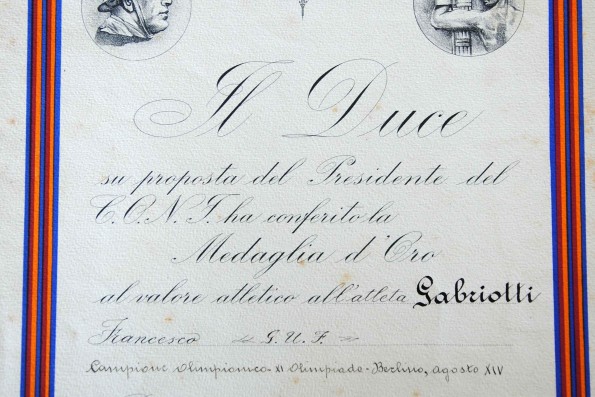 Il Duce
su proposta del Presidente del
C.O.N.I. ha conferito la
Medaglia d'Oro
al valore atletico all'atleta Gabriotti
Francesco G. U. F.
Campione Olimpionico - XI Olimpiade - Berlino, agosto XIV